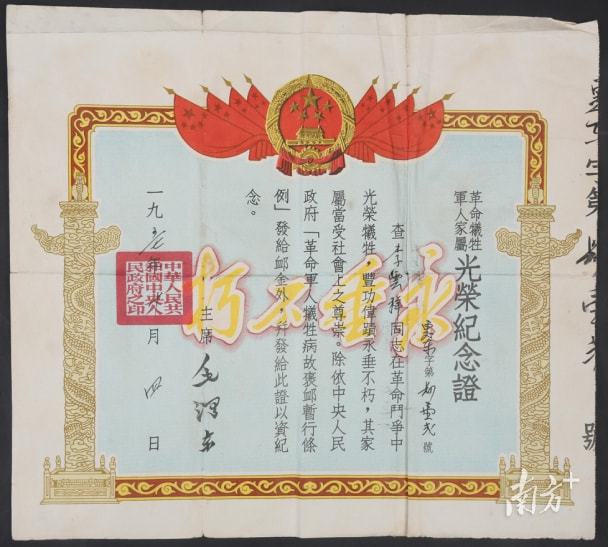 革命犧牲
軍人家屬
光榮紀念證
字第 號
查李 同志在革命鬥爭中
光榮犧牲，豐功偉蹟永垂不朽，其家
屬當受社會上之尊崇。除依中央人民
政府「革命軍人犧牲病故褒卹暫行條
例」發給卹金外，并發給此證以資紀
念。
永垂不朽
主席 毛澤东
一九五 年 月四日
中華人民共
和國中央人
民政府之印
號
南方+